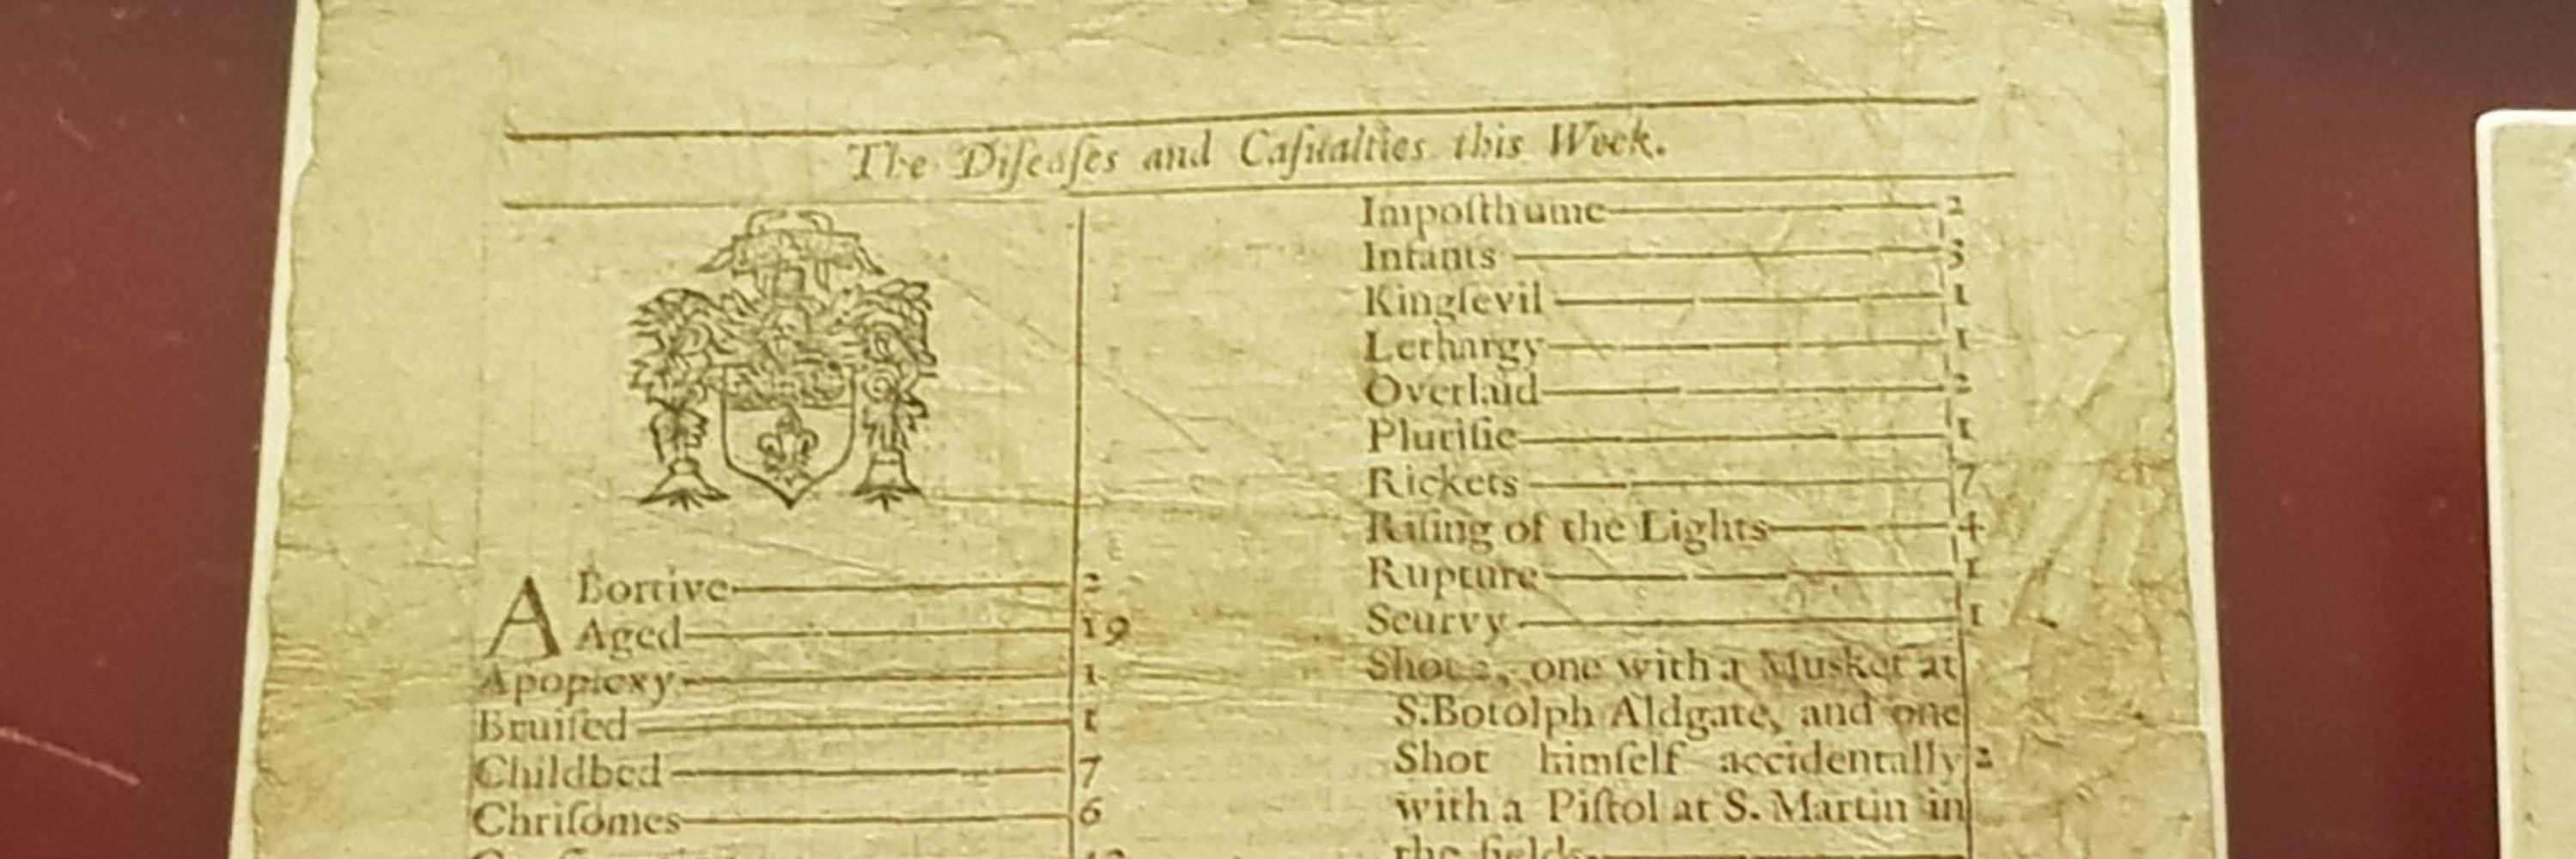 The Diſeaſes and Caſualties this Week.
ABortive 2
Aged 19
Apoplexy 1
Bruiſed 1
Childbed 7
Chriſomes 6
Impoſthume 2
Infants 5
Kingſevil 1
Lethargy 1
Overlaid 2
Pluriſie 1
Rickets 7
Riſing of the Lights 4
Rupture 1
Scurvy 1
Shot 2, one with a Musket at
S.Botolph Aldgate, and one
Shot himſelf accidentally 2
with a Piſtol at S. Martin in
the fields